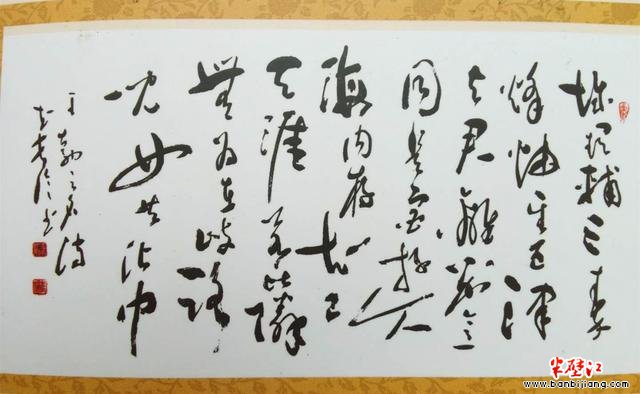 城阙輔三秦
烽烟望五津
与君離别意
同是宦游人
海内存知己
天涯若比鄰
無为在歧路
兒女共沾巾
王勃之名诗
半壁江
www.banbijiang.com